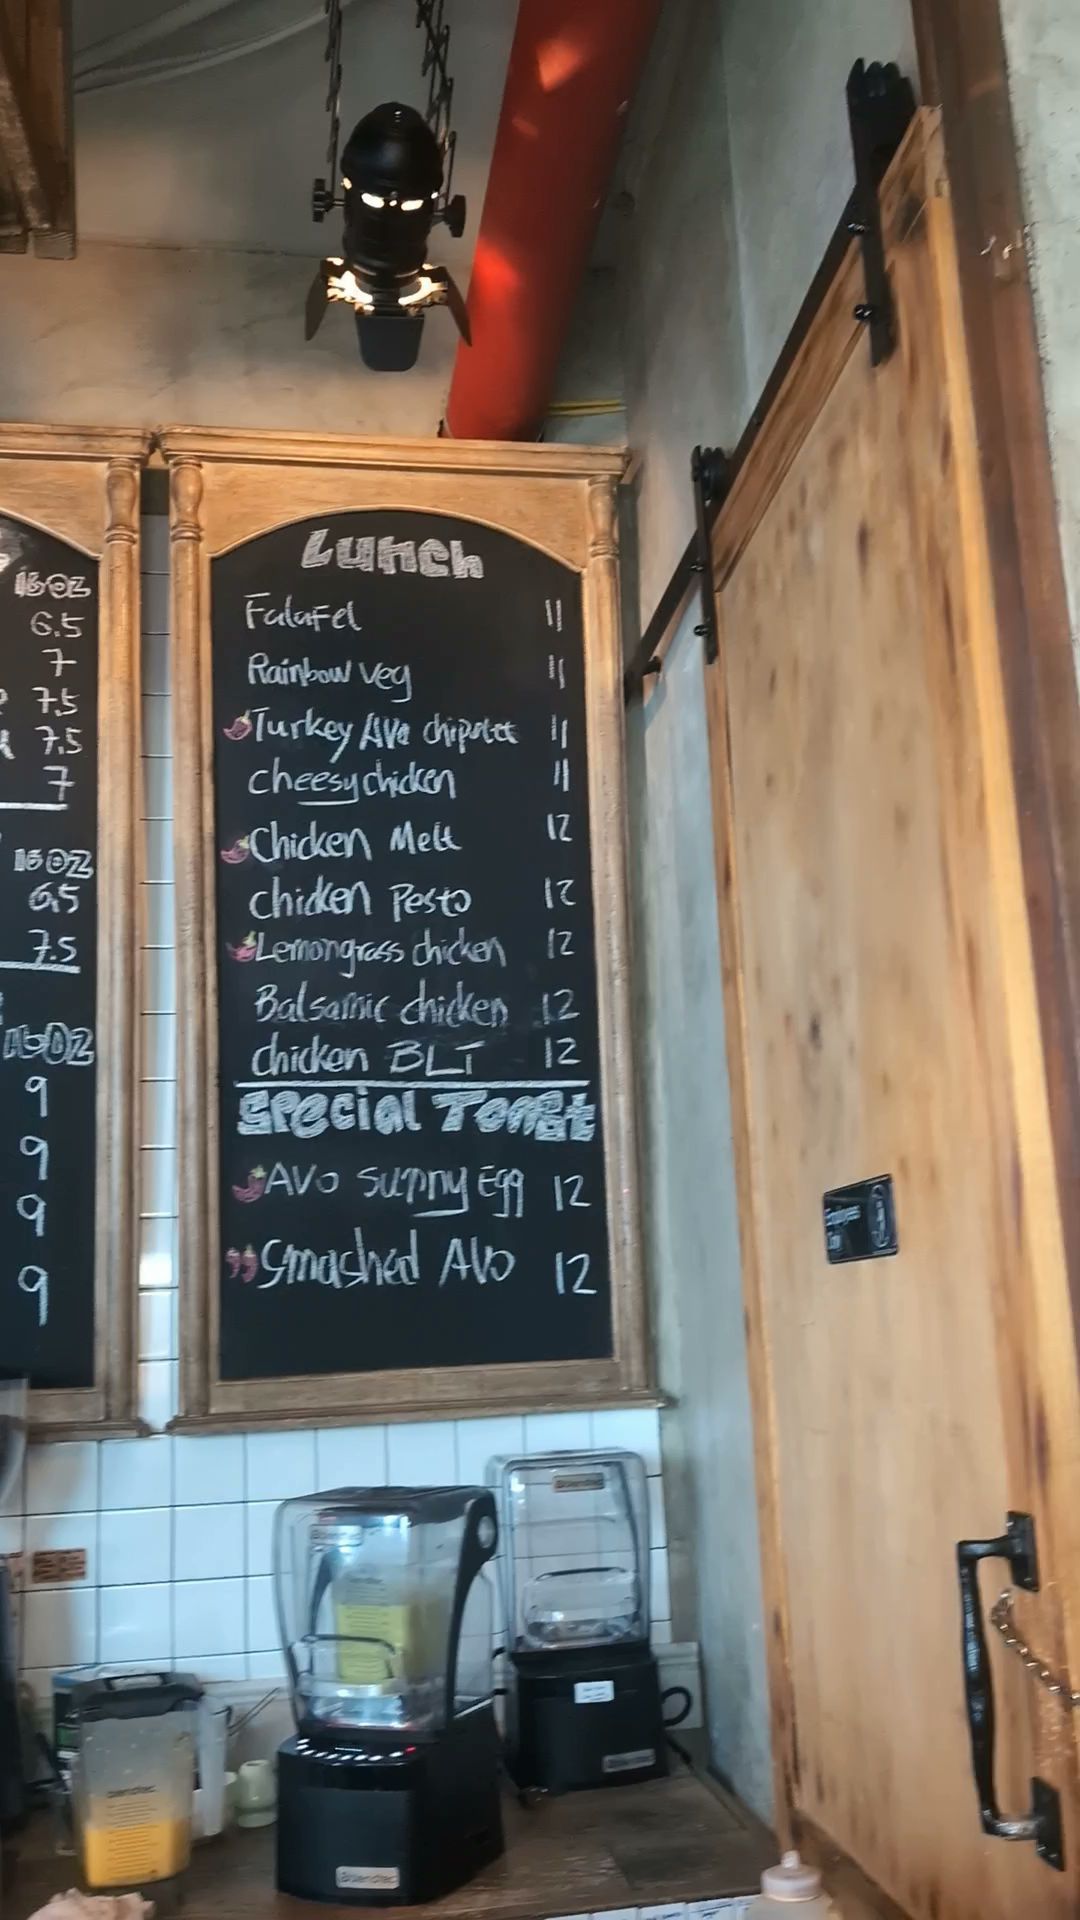 16OZ
6.5
7
7.5
7.5
7
16OZ
6.5
7.5
16OZ
9
9
9
9
Lunch
Falafel 11
Rainbow veg 11
Turkey Avo chipotle 11
cheesy chicken 11
Chicken Melt 12
chicken Pesto 12
Lemongrass chicken 12
Balsamic chicken 12
chicken BLT 12
Special Toast
Avo sunny Egg 12
Smashed Avo 12
Employees
Only
Blendtec
blendtec
Blendtec